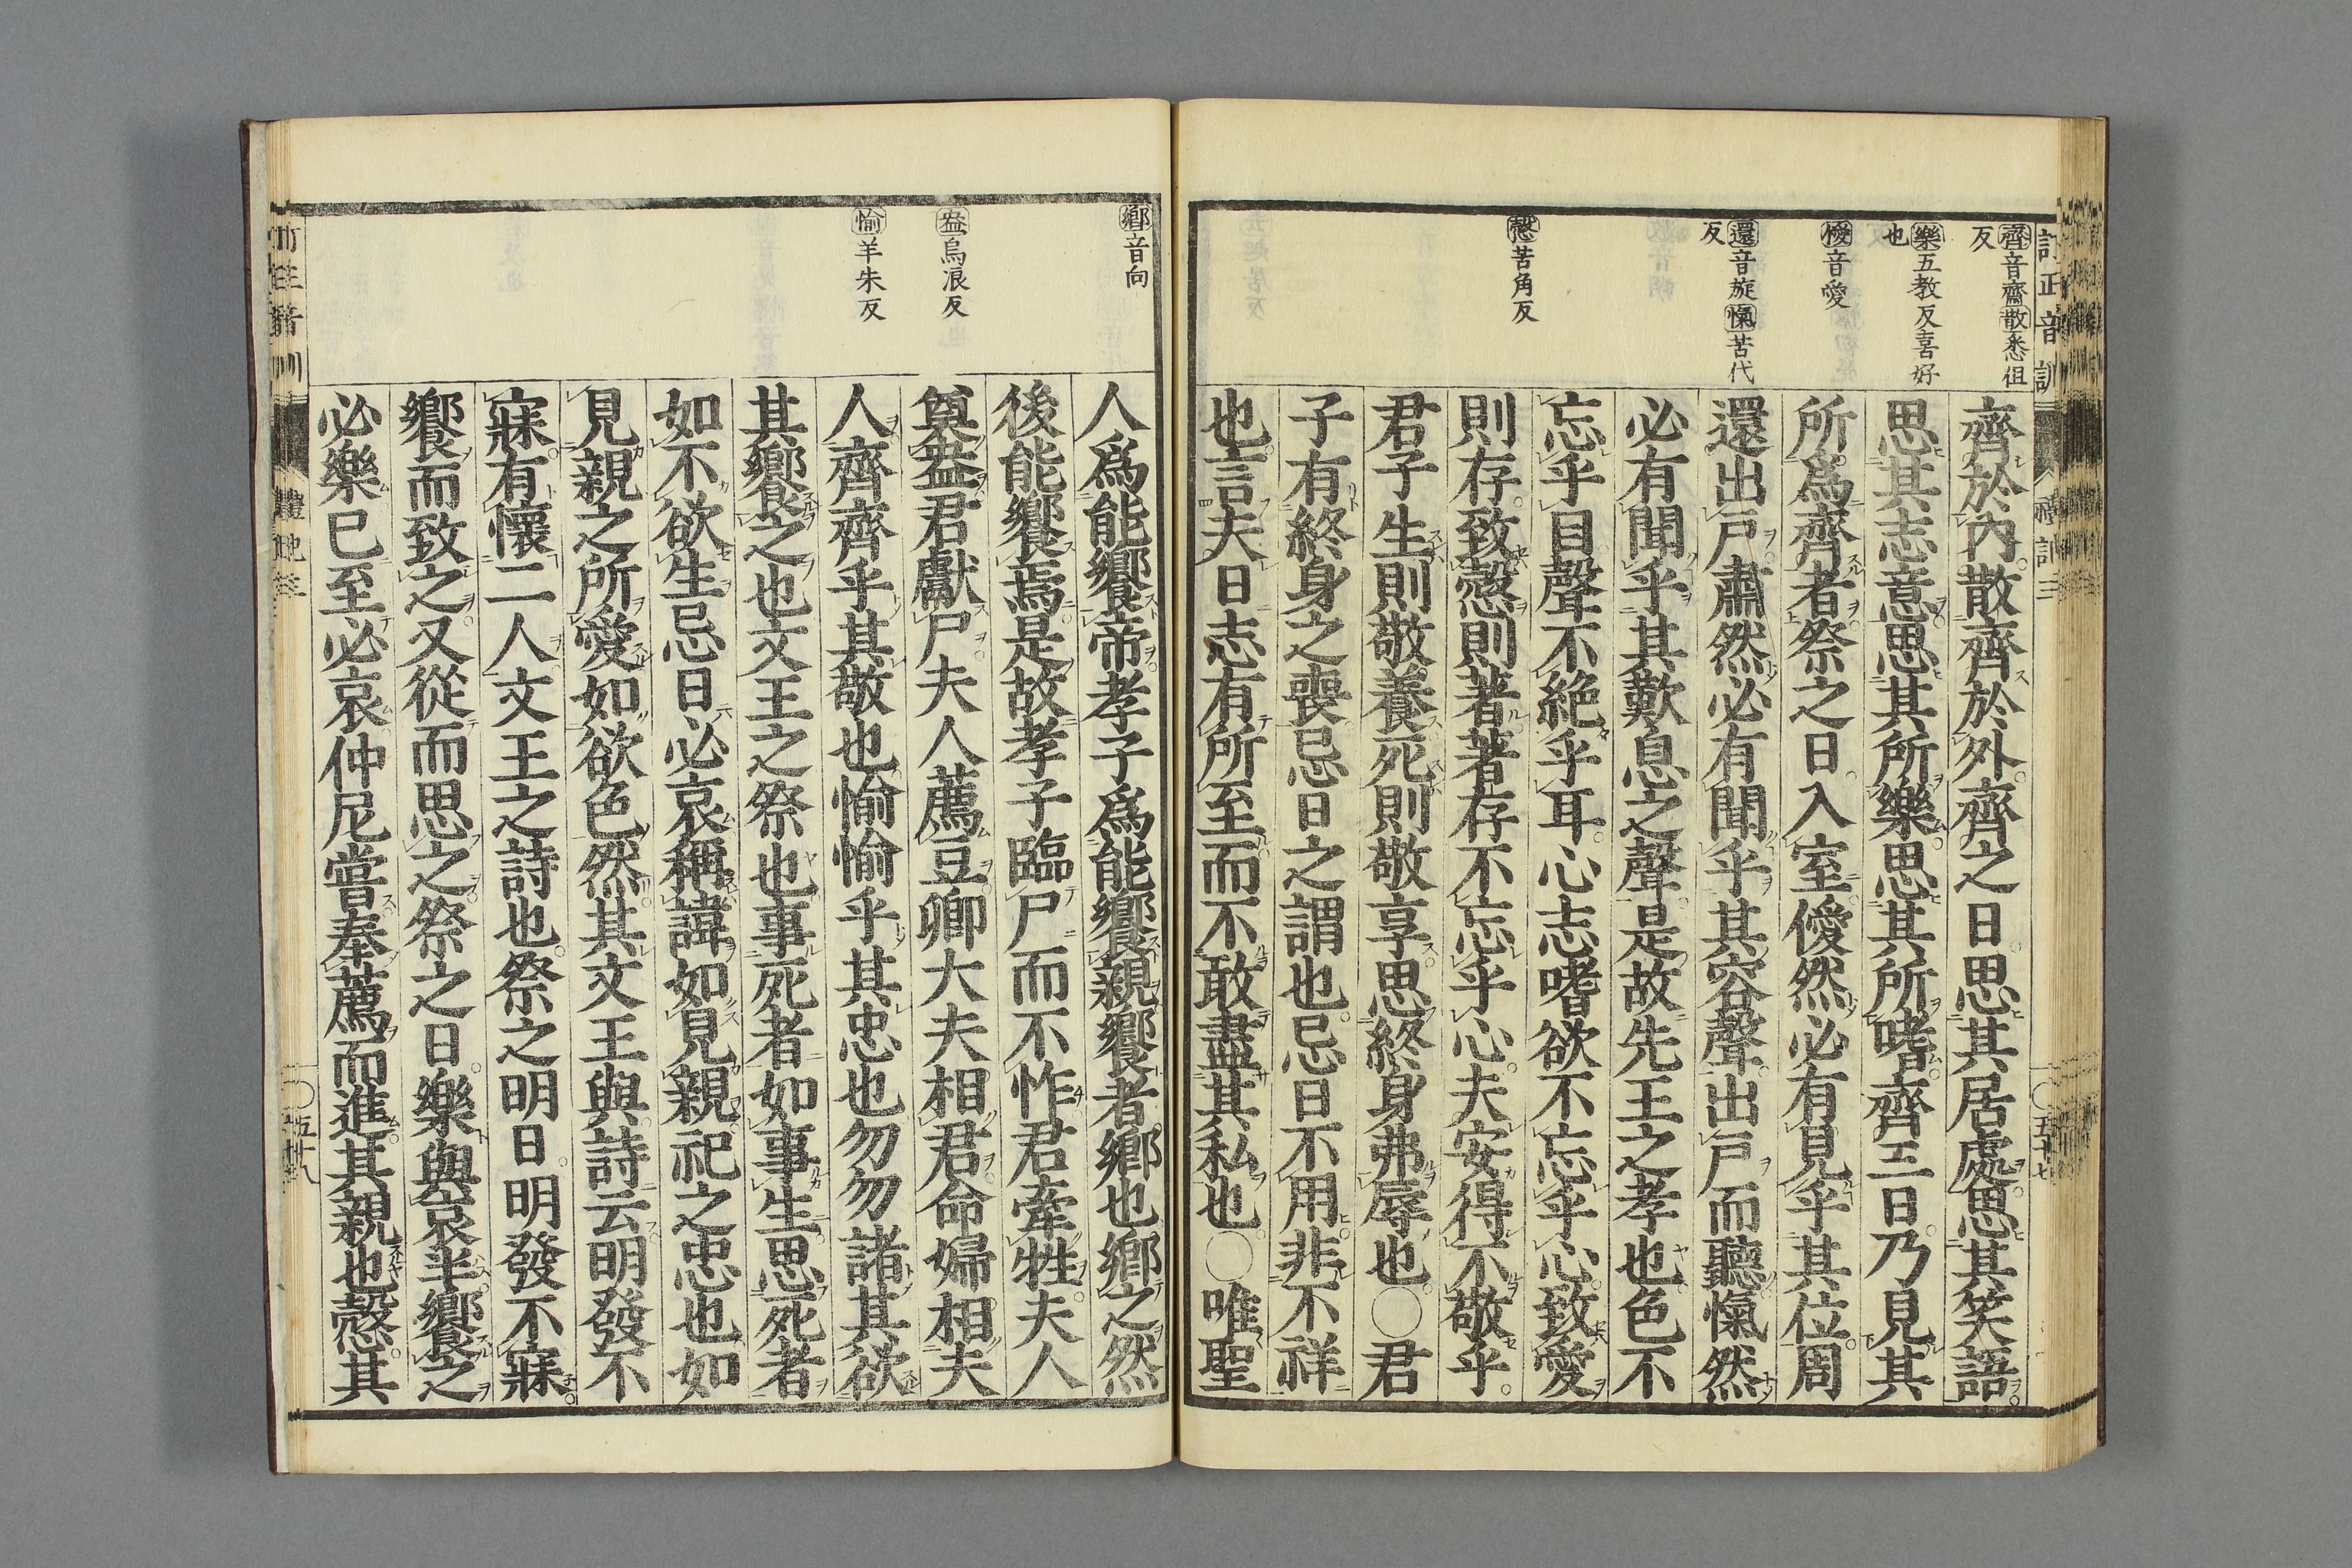 訂正音訓
禮記三
五十七
齊音齋散悉但
反
樂五教反喜好
也
僾音愛
還音旋愾苦代
反
慤苦角反
齊於內散齊於外齊之日思其居處思其笑語
思其志意思其所樂思其所嗜齊三日乃見其
所爲齊者祭之日入室僾然必有見乎其位周
還出戸肅然必有聞乎其容聲出戸而聽愾然
必有聞乎其歎息之聲是故先王之孝也色不
忘乎目聲不絕乎耳心志嗜欲不忘乎心致愛
則存致慤則著著存不忘乎心夫安得不敬乎
君子生則敬養死則敬享思終身弗辱也〇君
子有終身之喪忌日之謂也忌日不用非不祥
也言夫日志有所至而不敢盡其私也〇唯聖
鄉音向
盎烏浪反
愉羊朱反
人爲能饗帝孝子爲能饗親饗者鄉也鄉之然
後能饗焉是故孝子臨尸而不怍君牽牲夫人
奠盎君獻尸夫人薦豆卿大夫相君命婦相夫
人齊齊乎其敬也愉愉乎其忠也勿勿諸其欲
其饗之也文王之祭也事死者如事生思死者
如不欲生忌日必哀稱諱如見親祀之忠也如
見親之所愛如欲色然其文王與詩云明發不
寐有懷二人文王之詩也祭之明日明發不寐
饗而致之又從而思之祭之日樂與哀半饗之
必樂已至必哀仲尼嘗奉薦而進其親也慤其